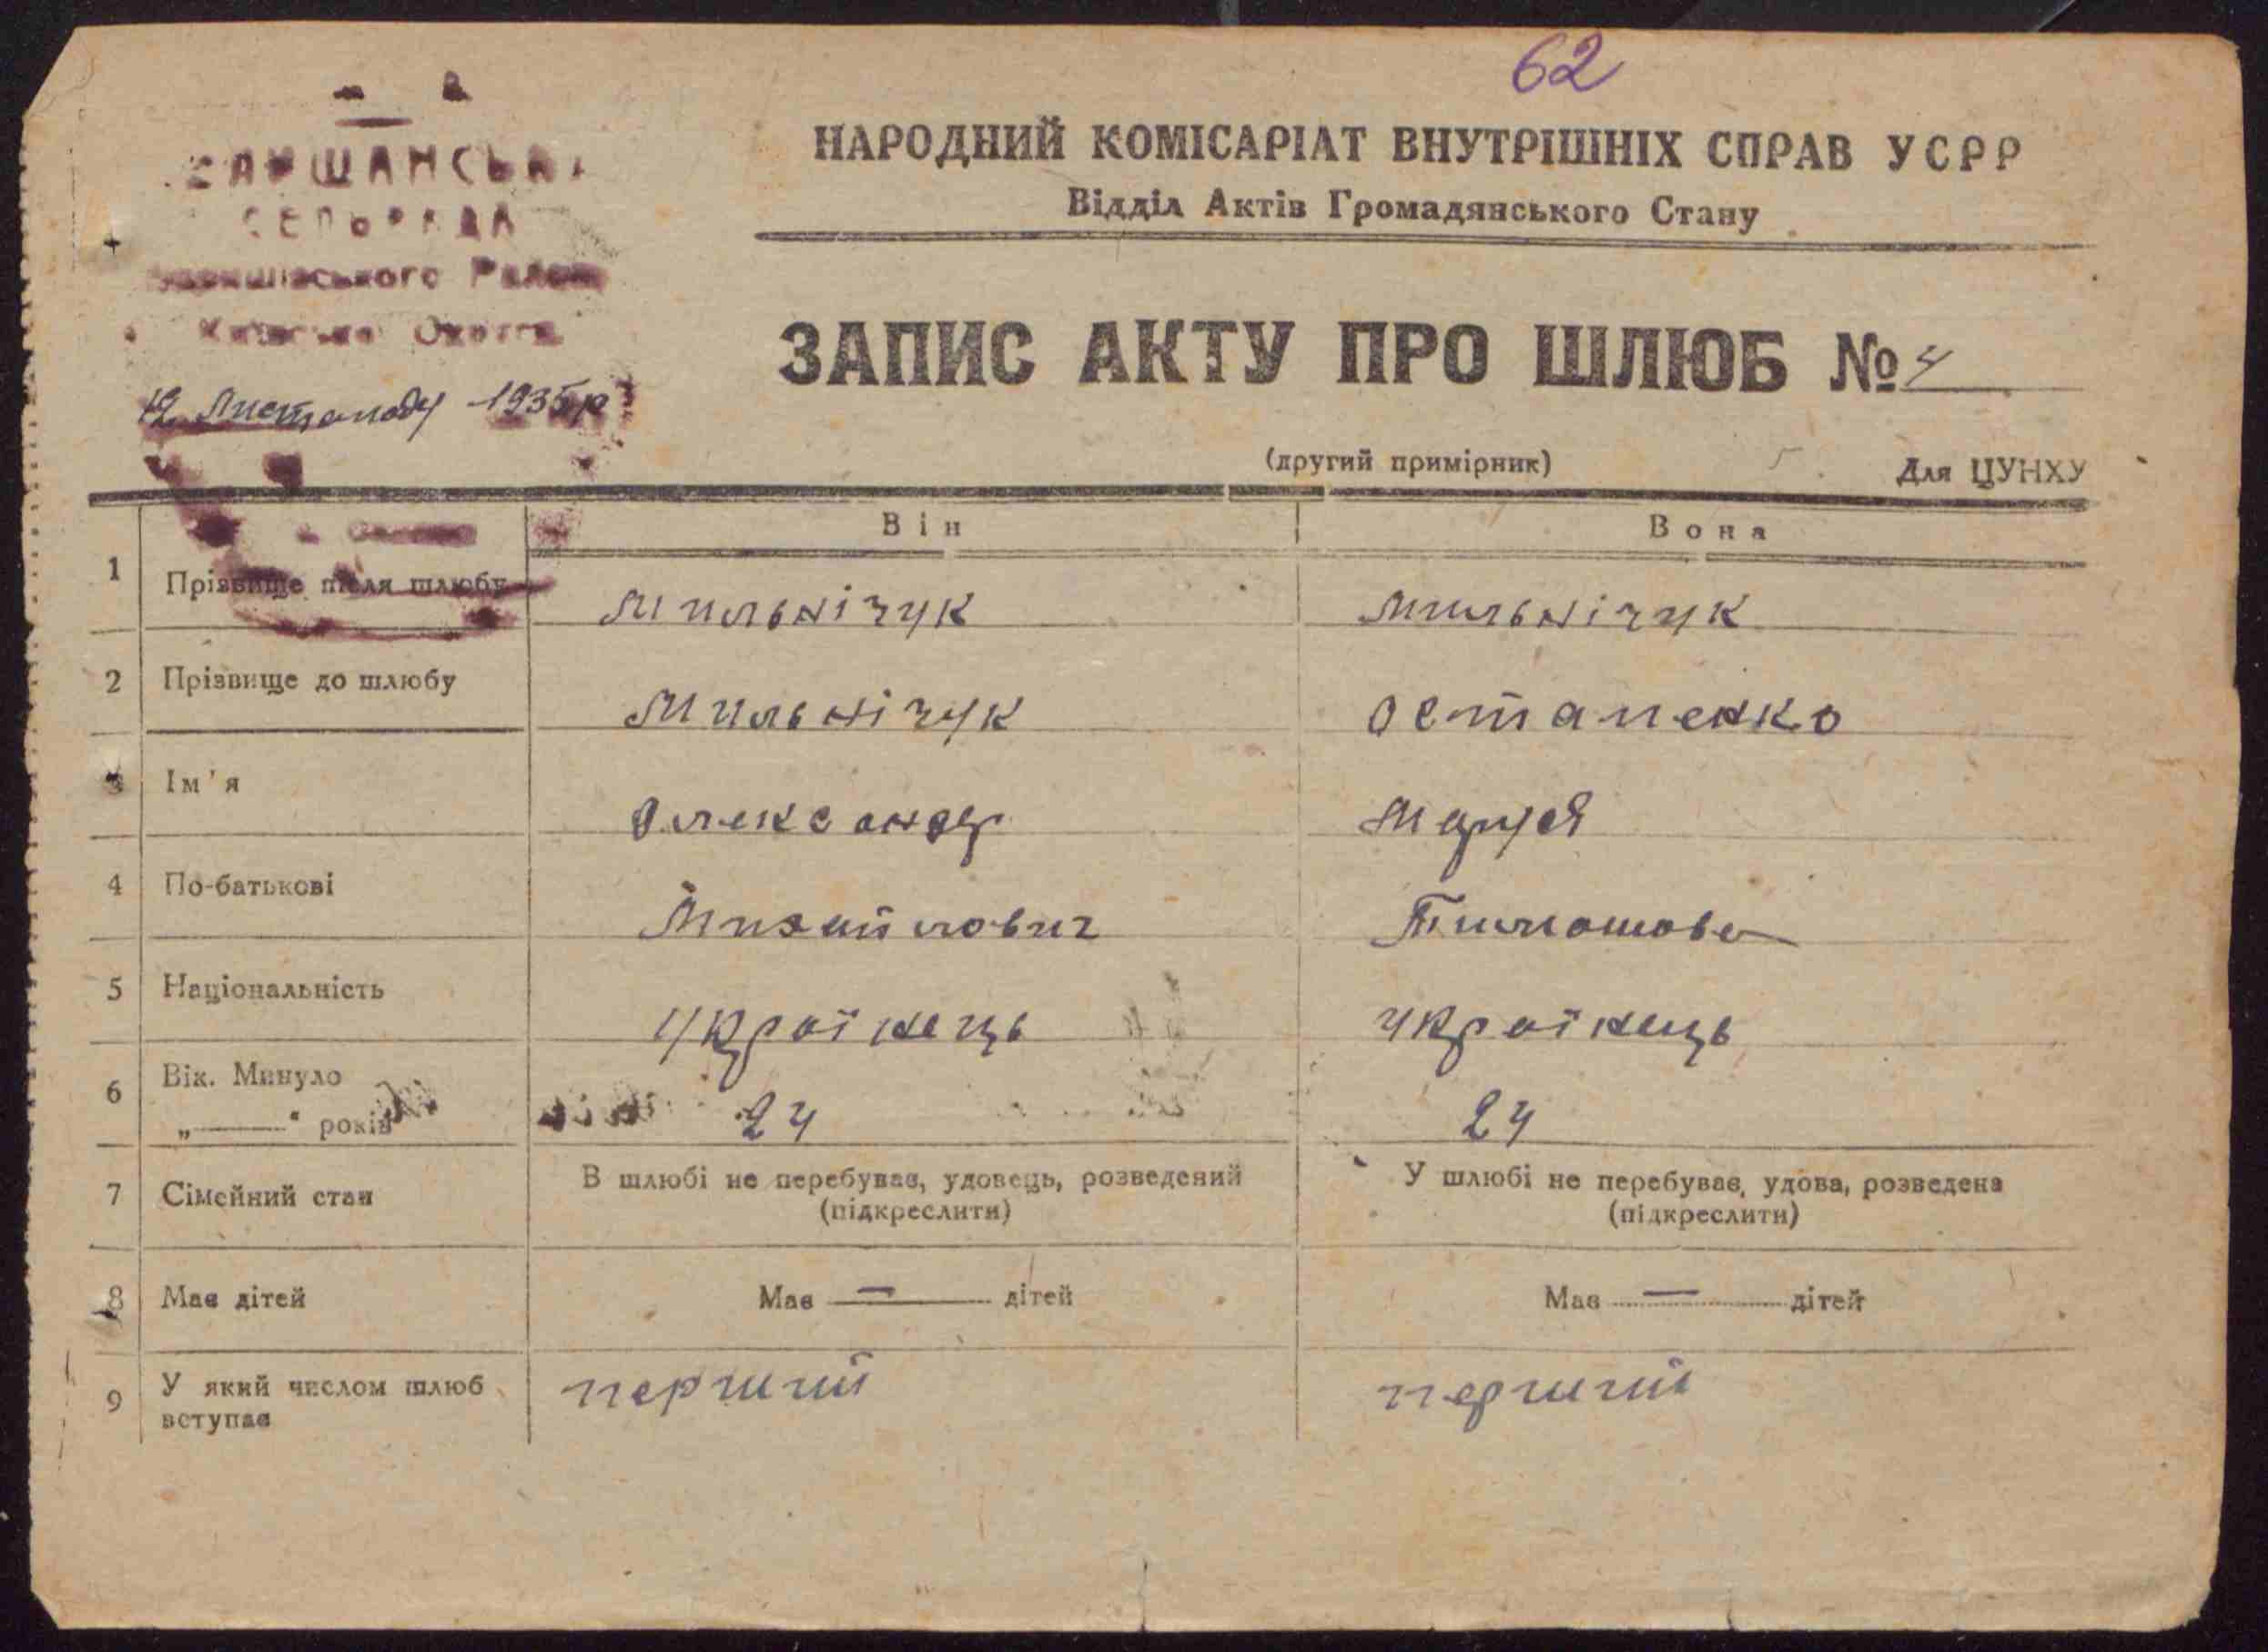 62
НАРОДНИЙ КОМІСАРІАТ ВНУТРІШНІХ СПРАВ УСРР
Відділ Актів Громадянського Стану
СЕЛЬРАДА
12 Листопаду 1935 р
ЗАПИС АКТУ ПРО ШЛЮБ № 4
(другий примірник) Для ЦУНХУ
Він Вона
1 Прізвище після шлюбу Мильнічук Мильнічук
2 Прізвище до шлюбу Мильнічук Остапенко
3 Ім'я Олександр Маруся
4 По-батькові Михайлович Тимошова
5 Національність Україкець Україкець
6 Вік. Минуло
„——“ років 24 24
7 Сімейний стан В шлюбі не перебуває, удовець, розведений У шлюбі не перебуває, удова, розведена
(підкреслити) (підкреслити)
8 Має дітей Має — дітей Має — дітей
9 У який числом шлюб вступає перший перший